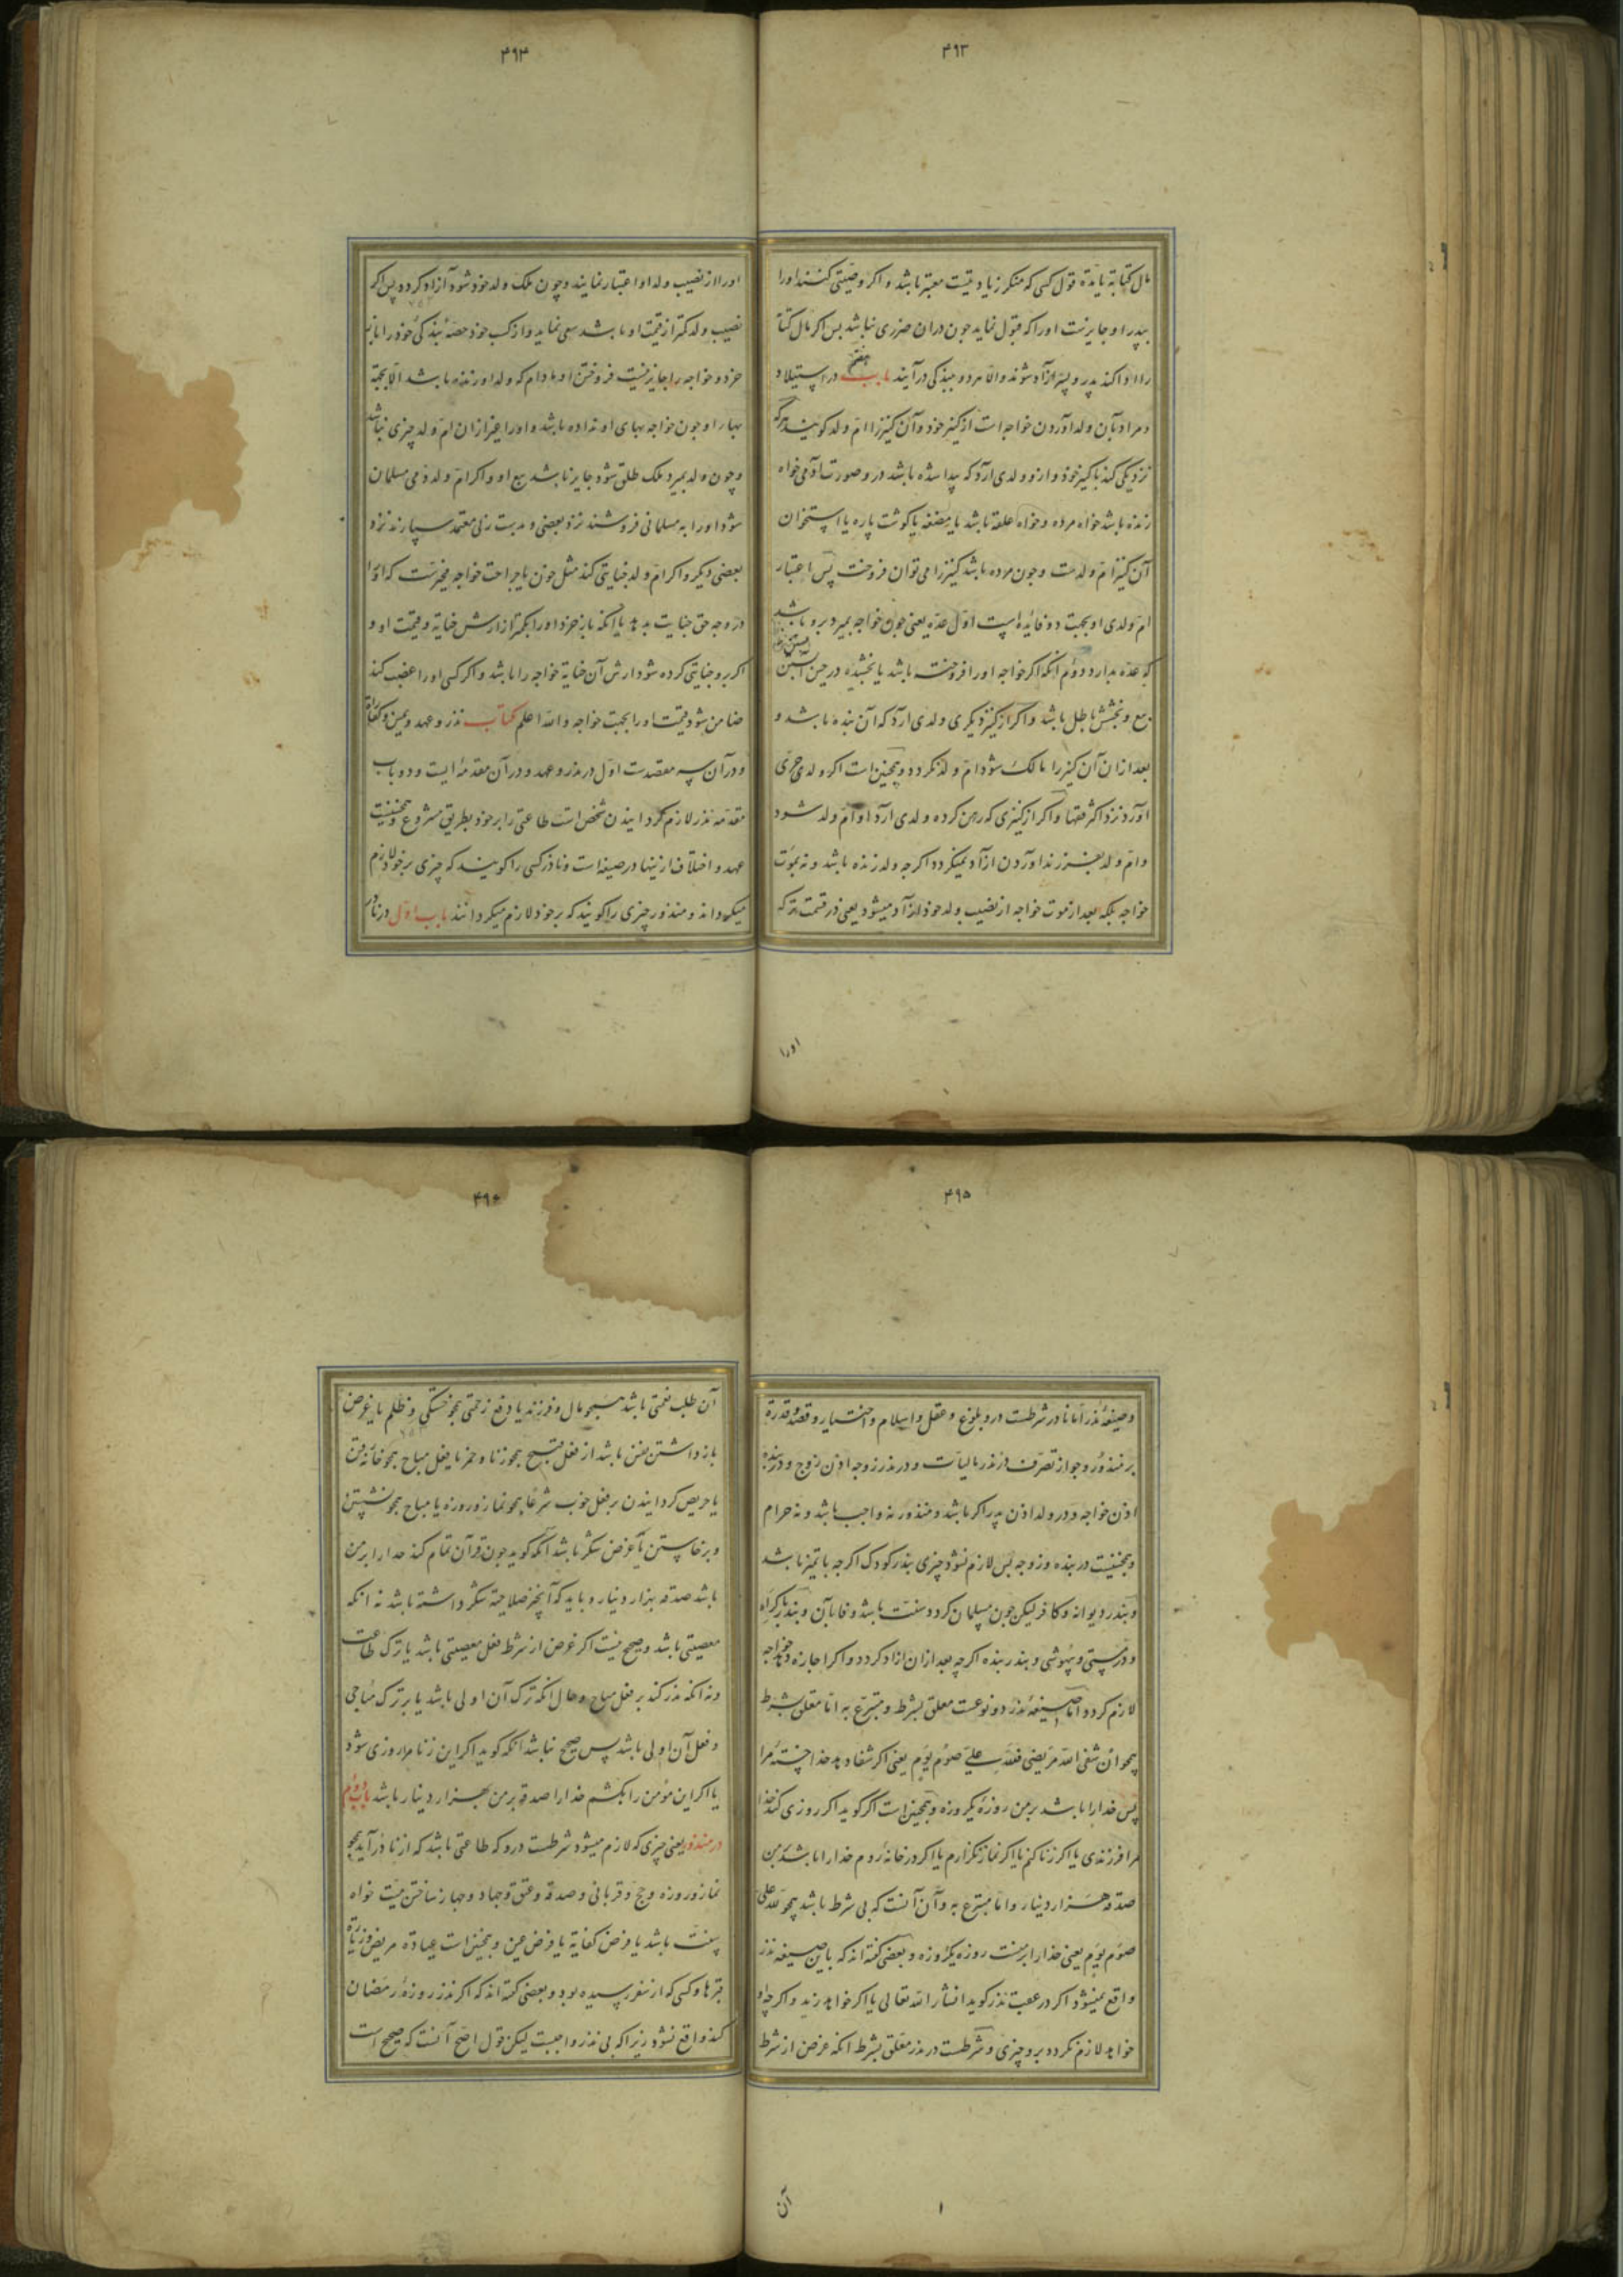 ۴۹۳
مال کتابة یا مدة قول کسی که منکر زیادتیست معتبر باشد و اگر وصیتی کنند او را
بپدر او جایزست او را که قبول نماید چون دران ضرری نباشد پس اگر مال کتابة
را ادا کند پدر و پسر آزاد شوند والا هر دو ببندگی در آیند باب هفتم در استیلاد
و مراد بآن ولد آوردن خواجه است از کنیز خود و آن کنیز را ام ولد گویند هرگه
نزدیکی کند با کنیز خود و ازو ولدی آرد که پیدا شده باشد درو صورت آدمی خواه
زنده باشد خواه مرده و خواه علقه باشد یا مضغه یا گوشت پاره یا استخوان
آن کنیز ام ولدست و چون مرده باشد کنیز را می توان فروخت پس اعتبار
ام ولدی او بجهت دو فایده است اول عده یعنی چون خواجه بمیرد برو باشد
که عده بدارد دوم آنکه اگر خواجه او را فروخته باشد یا بخشیده در حین آبستن
بیع و بخشش باطل باشد و اگر از کنیز دیگری ولدی آرد که آن بنده باشد و
بعد ازان آن کنیز را مالک شود ام ولد نگردد و همچنین است اگر ولدی حری
آورد نزد اکثر فقها و اگر از کنیزی که رهن کرده ولدی آرد او ام ولد شود
و ام ولد بفرزند آوردن آزاد نمیگردد اگرچه ولد زنده باشد و نه بموت
خواجه بلکه بعد از موت خواجه از نصیب ولد خود آزاد میشود یعنی در قسمت ترکه
او را
۴۹۴
او را از نصیب ولد او اعتبار نمایند و چون ملک ولد خود شود آزاد گردد پس اگر
نصیب ولد کمتر از قیمت او باشد سعی نماید و از کسب خود حصه بندگی خود را باز
خرد و خواجه را جایز نیست فروختن او مادام که ولد او زنده باشد الا بجهة
بهاء او چون خواجه بهای او نداده باشد و او را غیر ازان ام ولد چیزی نباشد
و چون ولد بمیرد ملک طلق شود جایز باشد بیع او و اگر ام ولد ذمی مسلمان
شود او را به مسلمانی فروشند نزد بعضی و بدست زنی معتمد سپارند نزد
بعضی دیگر و اگر ام ولد جنایتی کند مثل خون یا جراحت خواجه مخیرست که او را
در وجه حق جنایت بدهد یا آنکه باز خرد او را بکمتر از ارش جنایة و قیمت او و
اگر برو جنایتی کرده شود ارش آن جنایة خواجه را باشد و اگر کسی او را غصب کند
ضامن شود قیمت او را بجهت خواجه والله اعلم کتاب نذر و عهد و یمین و کفارة
و در آن سه مقصدست اول در نذر و عهد و در آن مقدمه ایست و دو باب
مقدمه نذر لازم گردانیدن شخص است طاعتی را بر خود بطریق مشروع و همچنینست
عهد و اختلاف اینها در صیغه است و ناذر کسی را گویند که چیزی بر خود لازم
میگرداند و منذور چیزی را گویند که بر خود لازم میگردانند باب اول در ناذر
۴۹۵
و صیغه نذر اما ناذر شرطست درو بلوغ و عقل و اسلام و اختیار و قصد و قدرة
بر منذور و جواز تصرف در نذر مالیات و در نذر زوجه اذن زوج و در بنده
اذن خواجه و در ولد اذن پدر اگر باشد و منذور نه واجب باشد و نه حرام
و همچنینست در بنده و زوجه پس لازم نشود چیزی بنذر کودک اگرچه با تمیز باشد
و بنذر دیوانه و کافر لیکن چون مسلمان گردد سنت باشد وفا بآن و بنذر باکراه
و در مستی و بیهوشی و بنذر بنده اگرچه بعد ازان آزاد گردد و اگر اجازه دهد خواجه
لازم گردد اما صیغه نذر دو نوعست معلق بشرط و متبرع به اما معلق بشرط
همچو ان شفی الله مریضی فلله علی صوم یوم یعنی اگر شفا دهد خدا خسته مرا
پس خدا را باشد بر من روزه یکروزه و همچنین است اگر گوید اگر روزی کند خدا
مرا فرزندی یا اگر زنا کنم یا اگر نماز نگزارم یا اگر در خانه روم خدا را باشد بر من
صدقه هزار دینار و اما متبرع به و آن آنست که بی شرط باشد همچو لله علی
صوم یوم یعنی خدا را بر منست روزه یکروزه و بعضی گفته اند که باین صیغه نذر
واقع نمیشود اگر در عقب نذر گوید انشاء الله تعالی یا اگر خواهد زید و اگرچه او
خواهد لازم نگردد برو چیزی و شرطست در نذر معلق بشرط آنکه غرض از شرط
آن
۴۹۶
آن طلب نعمتی باشد همچو مال و فرزند یا دفع زحمتی همچو خستگی و ظلم یا غرض
باز داشتن نفس باشد از فعل قبیح همچو زنا و خمر یا فعل مباح همچو خانه رفتن
یا حریص گردانیدن بر فعل خوب شرعا همچو نماز و روزه یا مباح همچو نشستن
و برخاستن یا غرض شکر باشد آنکه گوید چون قرآن تمام کند خدا را بر من
باشد صدقه هزار دینار و باید که آنچیز صلاحیة شکر داشته باشد نه آنکه
معصیتی باشد و صحیح نیست اگر غرض از شرط فعل معصیتی باشد یا ترک طاعت
و نه آنکه نذر کند بر فعل مباح و حال آنکه ترک آن اولی باشد یا بر ترک مباحی
و فعل آن اولی باشد پس صحیح نباشد آنکه گوید اگر این زنا مرا روزی شود
یا اگر این مؤمن را بکشم خدا را صدقه بر من هزار دینار باشد باب دوم
در منذور یعنی چیزی که لازم میشود شرطست درو که طاعتی باشد که از ناذر آید همچو
نماز و روزه و حج و قربانی و صدقه و عتق و جهاد و جهاز ساختن میت خواه
سنت باشد یا فرض کفایة یا فرض عین و همچنین است عیادة مریض و زیارة
قبرها و کسی که از سفر رسیده بود و بعضی گفته اند که اگر نذر روزه رمضان
کند واقع نشود زیرا که بی نذر واجبست لیکن قول اصح آنست که صحیح است